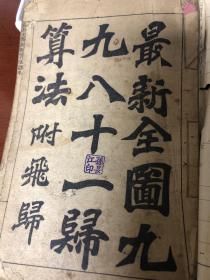 最新全圖九
九八十一歸
算法附飛歸